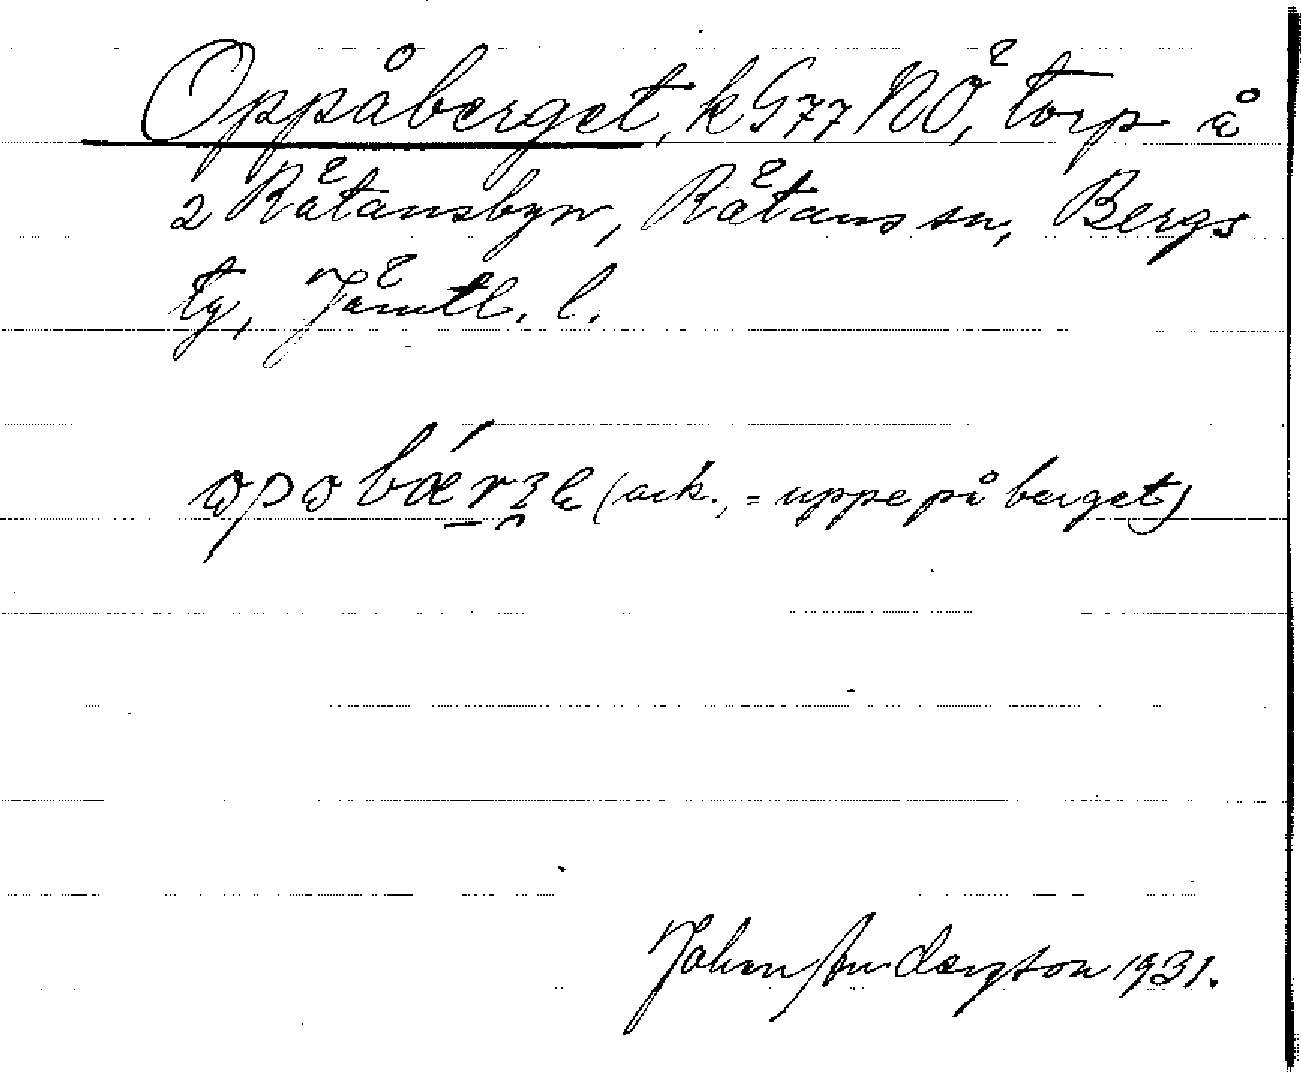 Oppåberget, k G77 NÖ, torp å
2 Rätansbyn, Rätans sn, Bergs
tg, Jämtl. l.
opobærʒe (ack., = uppe på berget)
John Anderzton 1931.